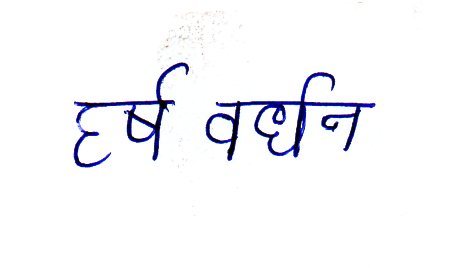 हर्ष वर्धन